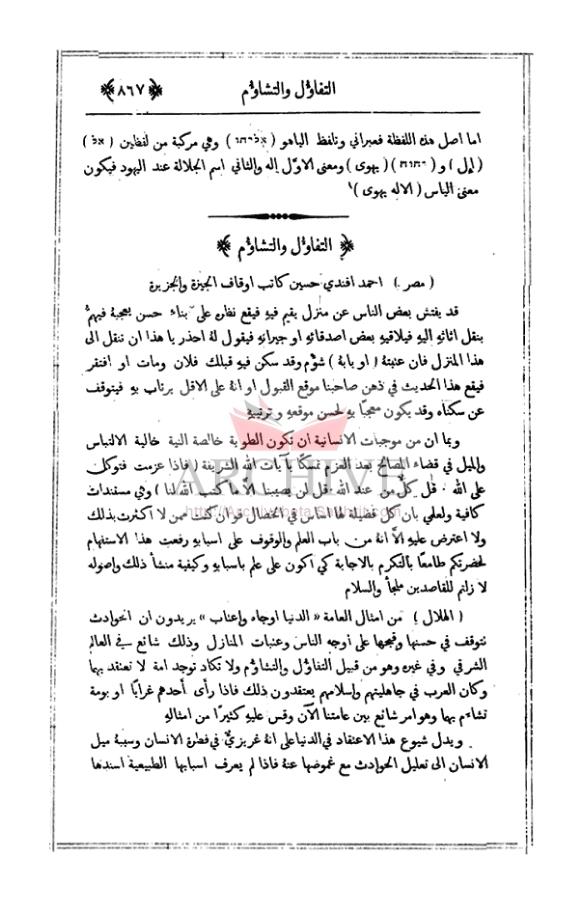 التفاؤل والتشاؤم
﴿٨٦٧﴾
اما اصل هذه اللفظة فعبراني وتلفظ الياهو ( אליהו ) وهي مركبة من لفظين ( אל )
( إيل ) و ( יהוה ) ( يهوى ) ومعنى الاول إله والثاني اسم الجلالة عند اليهود فيكون
معنى الياس ( الاله يهوى )
﴿ التفاؤل والتشاؤم ﴾
( مصر . ) احمد افندي حسين كاتب اوقاف الجيزة والجزيرة
قد يفتش بعض الناس عن منزل يقيم فيهِ فيقع نظره على بناء حسن يعجبهُ فيهمُّ
بنقل اثاثهِ اليهِ فيلاقيهِ بعض اصدقائهِ او جيرانهِ فيقول لهُ احذر يا هذا ان تنقل الى
هذا المنزل فان عتبتهُ ( او بابهُ ) شؤم وقد سكن فيهِ قبلك فلان ومات او افتقر
فيقع هذا الحديث في ذهن صاحبنا موقع القبول او انهُ على الاقل يرتاب بهِ فيتوقف
عن سكناه وقد يكون معجبًا بهِ لحسن موقعهِ وترتيبهِ
وبما ان من موجبات الانسانية ان تكون الطوية خالصة النية خالية الالتباس
والميل في قضاء المصالح بعد العزم تمسكًا بآيات الله الشريفة ( فاذا عزمت فتوكل
على الله . قل كل من عند الله . قل لن يصيبنا الا ما كتب الله لنا ) وهي مستندات
كافية ولعلمي بان لكل فضيلة لها اساس في الخصال فوان كنت ممن لا اكترث بذلك
ولا اعترض عليهِ الّا انهُ من باب العلم والوقوف على اسبابهِ رفعت هذا الاستفهام
لحضرتكم طامعًا بالتكرم بالاجابة كي اكون على علم باسبابهِ وكيفية منشأ ذلك واصوله
لا زلتم للقاصدين ملجأ والسلام
( الهلال ) من امثال العامة « الدنيا اوجاه واعتاب » يريدون ان الحوادث
تتوقف في حسنها وقبحها على اوجه الناس وعتبات المنازل وذلك شائع في العالم
الشرقي وفي غيره وهو من قبيل التفاؤل والتشاؤم ولا تكاد توجد امة لا تعتقد بهما
وكان العرب في جاهليتهم واسلامهم يعتقدون ذلك فاذا رأى أحدهم غرابًا او بومة
تشاءم بها وهو امر شائع بين عامتنا الآن وقس عليهِ كثيرًا من امثالهِ
ويدل شيوع هذا الاعتقاد في الدنيا على انهُ غريزيٌّ في فطرة الانسان وسببهُ ميل
الانسان الى تعليل الحوادث مع غموضها عنهُ فاذا لم يعرف اسبابها الطبيعية اسندها
ARCHIVE